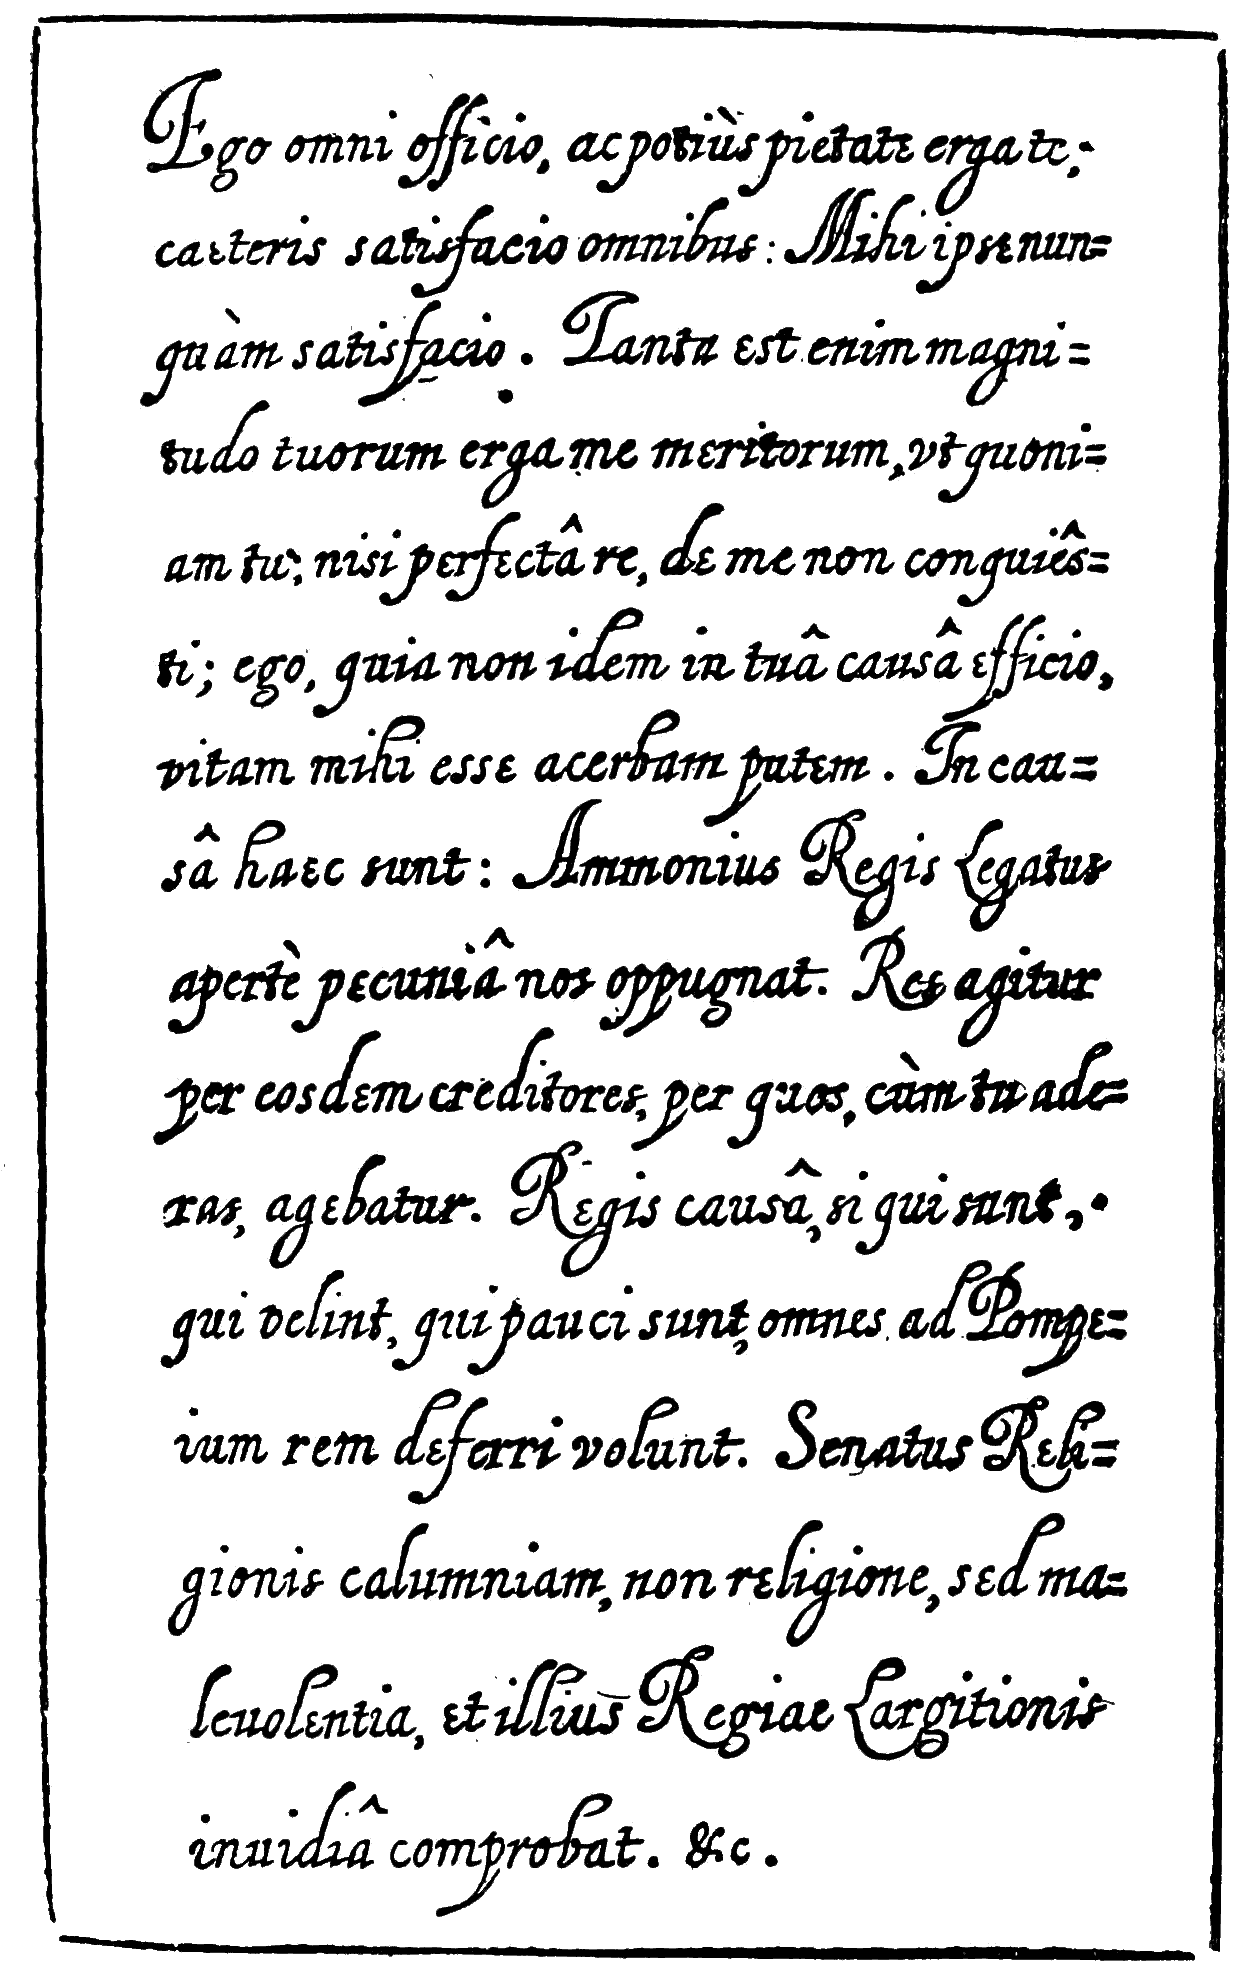 Ego omni officio, ac potiùs pietate erga te;
caeteris satisfacio omnibus: Mihi ipse nun=
quàm satisfacio. Tanta est enim magni=
tudo tuorum erga me meritorum, vt quoni=
am tu; nisi perfectâ re, de me non conquiês=
ti; ego, quia non idem in tuâ causâ efficio,
vitam mihi esse acerbam putem. In cau=
sâ haec sunt: Ammonius Regis Legatus
apertè pecuniâ nos oppugnat. Res agitur
per eosdem creditores, per quos, cùm tu ade=
ras, agebatur. Regis causâ, si qui sunt,
qui velint, qui pauci sunt, omnes ad Pompe=
ium rem deferri volunt. Senatus Reli=
gionis calumniam, non religione, sed ma=
leuolentia, et illius Regiae Largitionis
inuidiâ comprobat. &c.